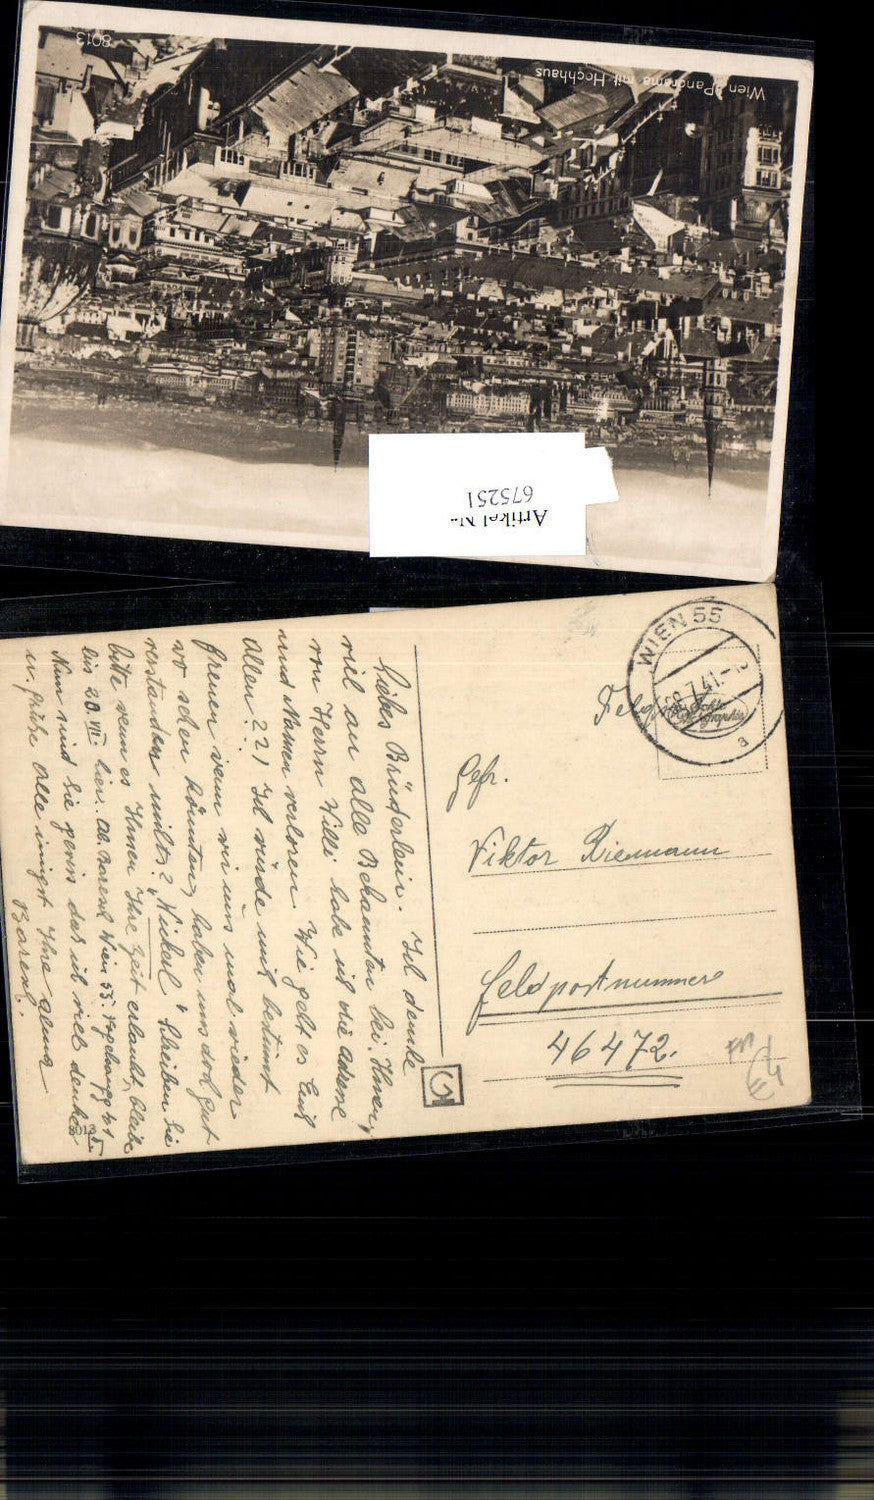 8013
Wien, Panorama mit Hochhaus
Artikel Nr.
675251
WIEN 55
28.7.41.-
a
Echte Photographie
Feldpost
Gefr.
Viktor Riemann
Feldpostnummer
46472.
Liebes Brüderlein. Ich danke
viel an alle Bekannten bei Ihnen,
von Herrn Willi habe ich die Adresse
und Namen verloren. Wie geht es Euch
allen? Ich würde mich bestimmt
freuen wenn wir uns mal wieder
wo sehen könnten, haben uns doch gut
verstanden miltos? "Nickal" Schreiben Sie
bitte wenn es Ihnen Ihre Zeit erlaubt, bleibe
bis 20. VIII. hier. Wien 55
Nun sind Sie gewiss das ich viel denke
u. grüße Alle innigst Ihre
8013